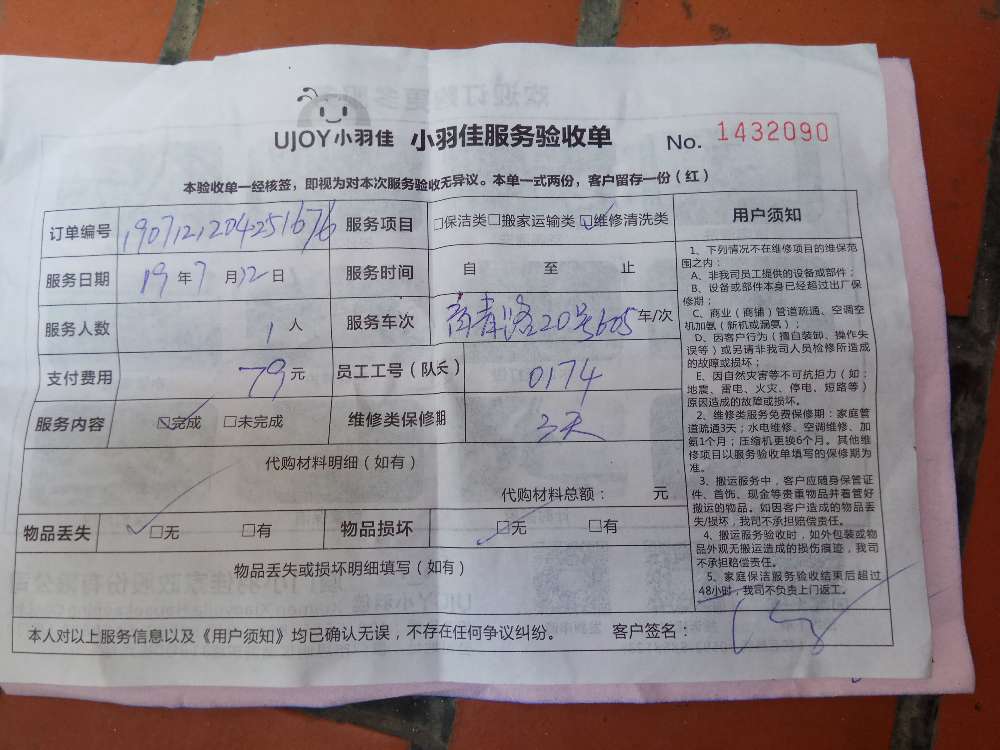 UJOY小羽佳 小羽佳服务验收单 No. 1432090
本验收单一经核签，即视为对本次服务验收无异议。本单一式两份，客户留存一份（红）
订单编号 1907121204251676 服务项目 □保洁类□搬家运输类☑维修清洗类
服务日期 19年7月12日 服务时间 自 至 止
服务人数 1人 服务车次 20号605 车/次
支付费用 79元 员工工号（队长） 0174
服务内容 ☑完成 □未完成 维修类保修期 3天
代购材料明细（如有）
代购材料总额： 元
物品丢失 ☑无 □有 物品损坏 ☑无 □有
物品丢失或损坏明细填写（如有）
用户须知
1、下列情况不在维修项目的维保范
围之内：
A、非我司员工提供的设备或部件；
B、设备或部件本身已经超过出厂保
修期；
C、商业（商铺）管道疏通、空调空
机加氨（新机或漏氨）；
D、因客户行为（擅自装卸、操作失
误等）或另请非我司人员检修所造成
的故障或损坏；
E、因自然灾害等不可抗担力（如：
地震、雷电、火灾、停电、短路等）
原因造成的故障或损坏。
2、维修类服务免费保修期：家庭管
道疏通3天；水电维修、空调维修、加
氨1个月；压缩机更换6个月。其他维
修项目以服务验收单填写的保修期为
准。
3、搬运服务中，客户应随身保管证
件、首饰、现金等贵重物品并看管好
搬运的物品。如因客户造成的物品丢
失/损坏，我司不承担赔偿责任。
4、搬运服务验收时，如外包装或物
品外观无搬运造成的损伤痕迹，我司
不承担赔偿责任。
5、家庭保洁服务验收结束后超过
48小时，我司不负责上门返工。
本人对以上服务信息以及《用户须知》均已确认无误，不存在任何争议纠纷。 客户签名：